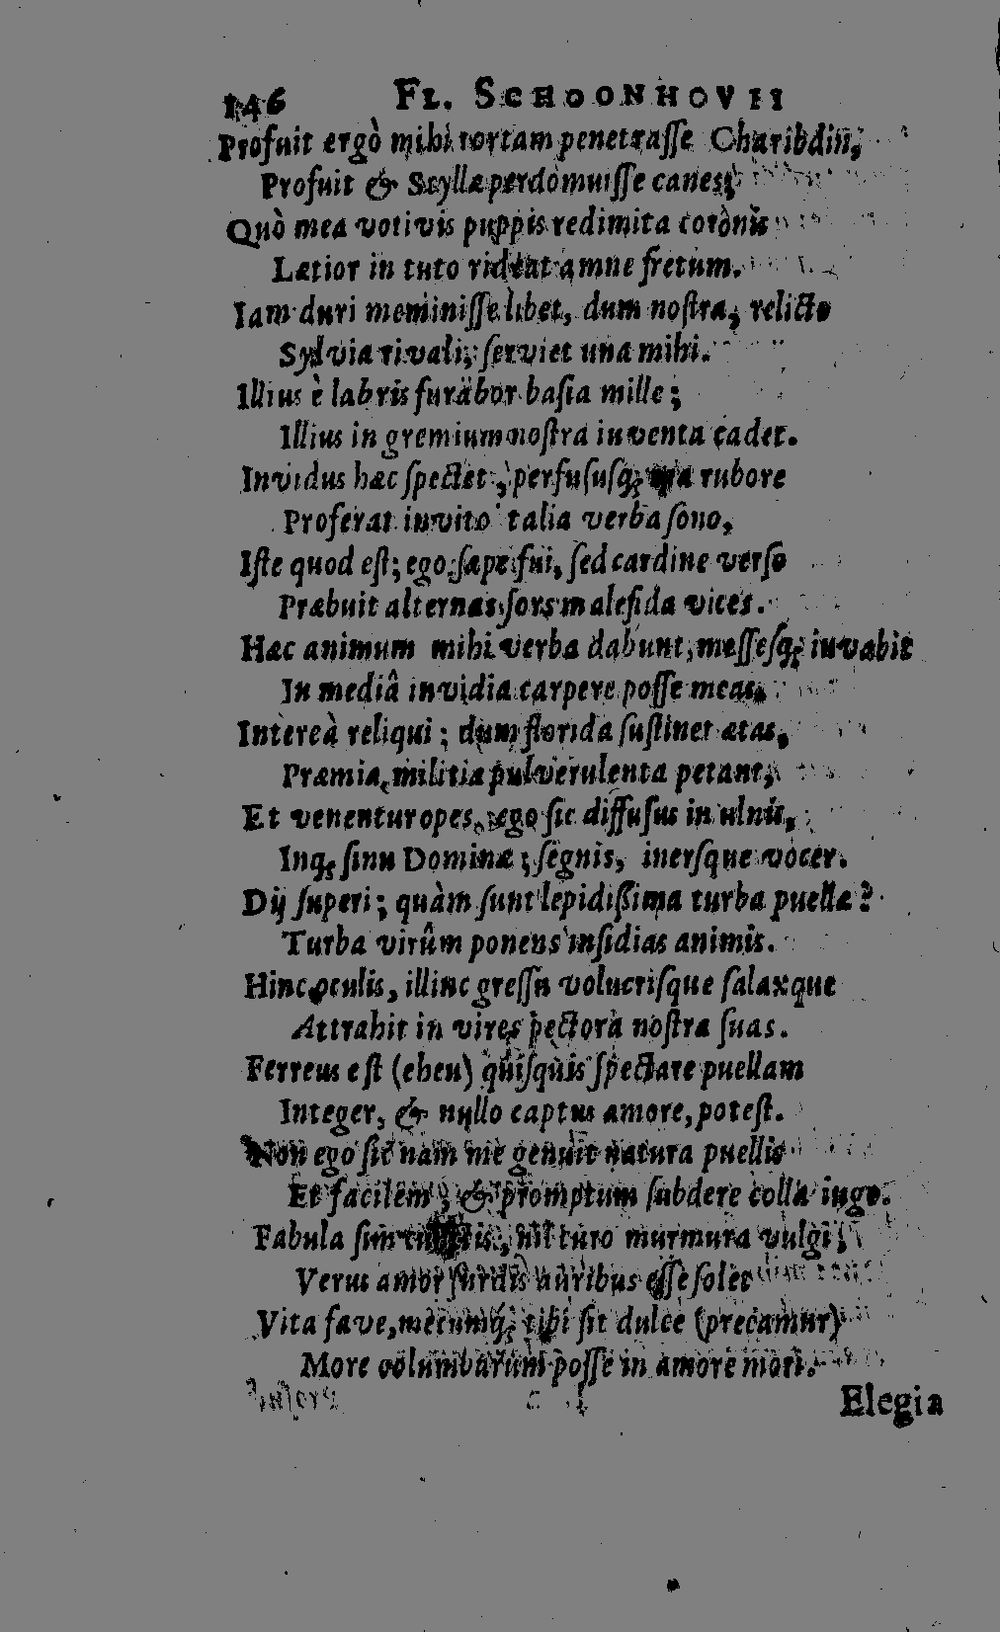 146 FL. SCHOONHOVII
Profuit ergò mihi tortam penetraſſe Charibdin,
Profuit & Scyllæ perdomuiſſe canes;
Quò mea votivis puppis redimita coronis
Lætior in tuto rideat amne fretum.
Iam duri meminiſſe libet, dum noſtra, relicto
Sylvia rivali, ſerviet una mihi.
Illius è labris furabor baſia mille;
Illius in gremium noſtra iuventa cadet.
Invidus hæc ſpectet, perfuſuſq; ora rubore
Proferat invito talia verba ſono,
Iſte quod eſt; ego ſæpe fui, ſed cardine verſo
Præbuit alternas ſors maleſida vices.
Hæc animum mihi verba dabunt, meſſeſq; iuvabit
In mediâ invidia carpere poſſe meas.
Intereà reliqui; dum florida ſuſtinet ætas,
Præmia militia pulverulenta petant,
Et venentur opes, ego ſic diffuſus in ulnis,
Inq; ſinu Dominæ; ſegnis, inerſque vocer.
Dij ſuperi; quàm ſunt lepidißima turba puellæ?
Turba virûm ponens inſidias animis.
Hinc oculis, illinc greſſu volucriſque ſalaxque
Attrahit in vires pectora noſtra ſuas.
Ferreus eſt (eheu) quiſquis ſpectare puellam
Integer, & nullo captus amore, poteſt.
Non ego ſic nam me genuit natura puellis
Et facilem, & promptum ſubdere colla iugo.
Fabula ſim nil curo murmura vulgi;
Verus amor ſurdis auribus eſſe ſolet
Vita fave, mecumq; tibi ſit dulce (precamur)
More columbarum poſſe in amore mori.
Elegia